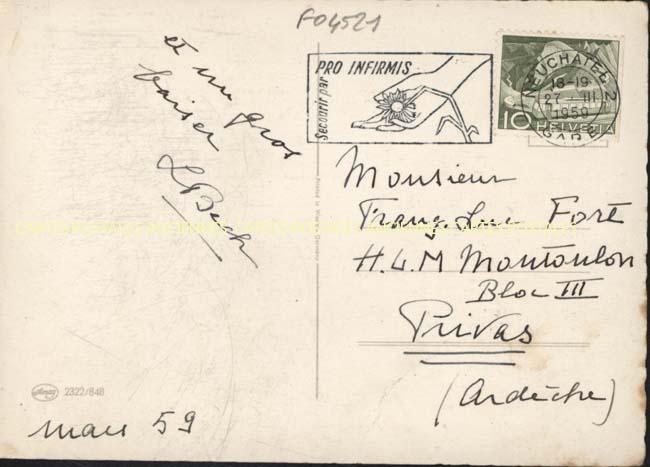 FO4521
et un gros
baiser
PRO INFIRMIS
Secourir par
NEUCHATEL 2
18-19
27. III
1959
GARE
10 HELVETIA
Monsieur
Franç Luc Fort
H.L.M Montoulon
Bloc III
Privas
(Ardèche)
2322/848
mars 59